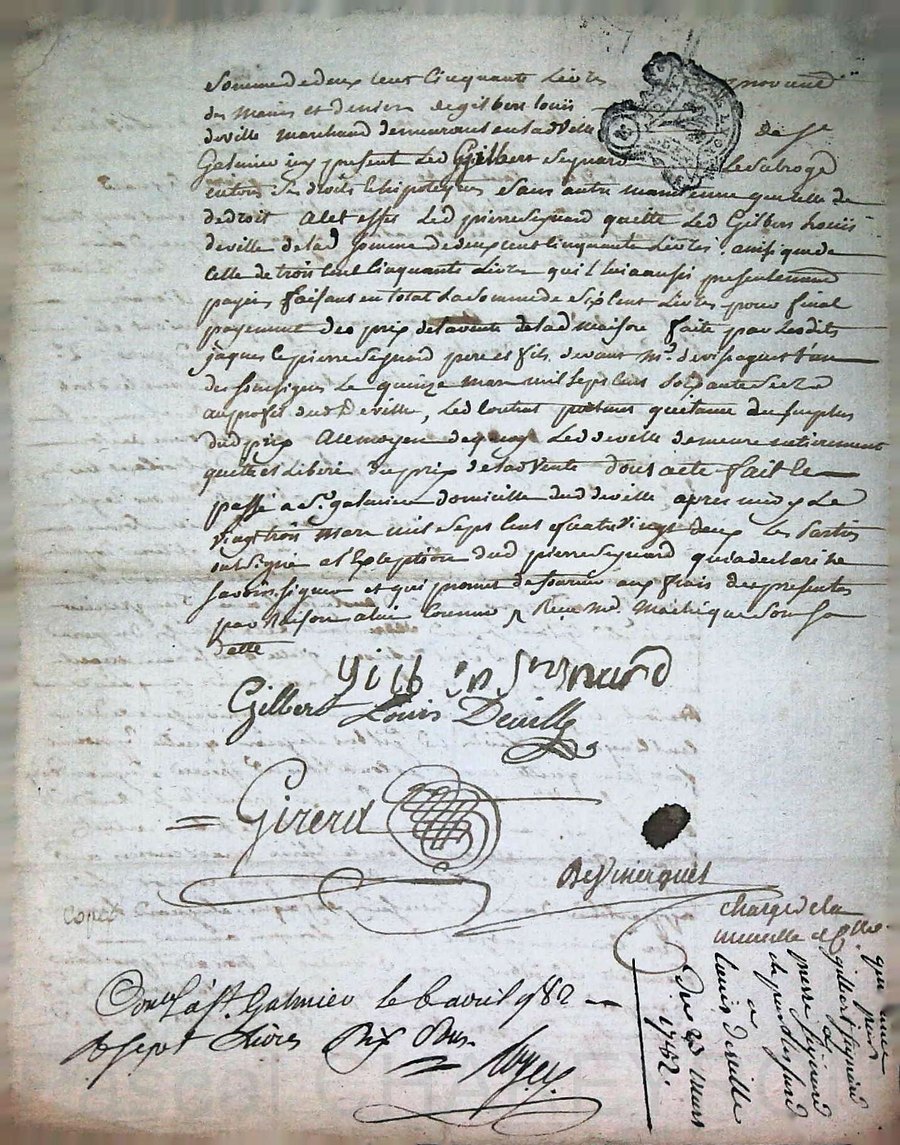 Somme de deux cent Cinquante Livres provenue
des Mains et deniers de gilbert louis
deville marchand demeurant en lad ville de St
Galmier icy present Led Gilbert Seynard Le Subroge
en tous Ses droits & hipoteques Sans autre maintenue que celle de
de droit A cet effet Led pierre Seynard quitte Led Gilbert Louis
deville de lad Somme de deux cent cinquante Livres. ainsi que de
Celle de trois Cent Cinquante Livres qu'il lui a aussi presentement
payée faisant en total La Somme de Six Cent Livres pour final
payement des prix de la vente de lad Maison faite par Lesdits
jaques & pierre Seynard pere et fils devant Me. l'un
des soussignes Le quinze Mars mil Sept Cent Soixante Seize
au profit dud Deville, Led Contrat portant quitance du Surplus
dud prix Au moyen de quoy Led deville demeure entierement
quitte et Libéré du prix de lad Vente dont acte fait &
passé a St. galmier domicille dud deville apres midy Le
vingt trois Mars mil Sept Cent quatre vingt deux Les Parties
ont Signé a l'Exception dud pierre Seynard qui a declaré ne
Savoir Signer et qui promet de fournir aux frais des presentes
par raison a lui Connue
datte
gilb Seynard
Gilbert Louis Deville
= Girerd
Copié
Conlé à St. Galmier le 6 avril 1782 —
R Sept Livres Dix
du 23 mars
1782.
louis deville
a
pierre Seynard
gilbert Seynard